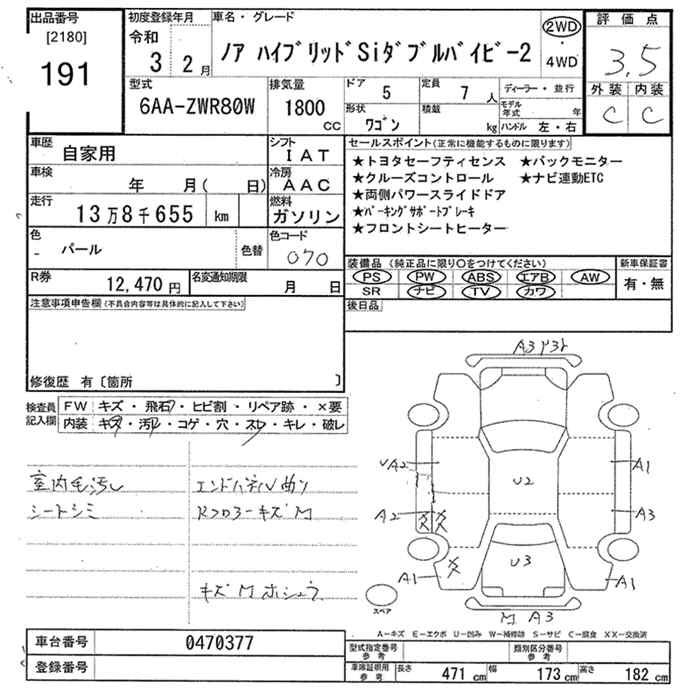 出品番号 初度登録年月 車名・グレード 評価点
[2180] 令和
191 3 2月 ノア ハイブリッドSiダブルバイビー2 2WD・4WD 3.5
型式 排気量 ドア 定員 ディーラー・並行 外装 内装
6AA-ZWR80W 1800 CC 5 7人 モデル年式 年 C C
形状 ワゴン 積載 kg ハンドル 左・右
車歴 自家用 シフト IAT セールスポイント(正常に機能するものに限ります)
車検 年 月( 日) 冷房 AAC ★トヨタセーフティセンス ★バックモニター
走行 13万8千655 km 燃料 ガソリン ★クルーズコントロール ★ナビ連動ETC
★両側パワースライドドア
★パーキングサポートブレーキ
★フロントシートヒーター
色 - パール 色替 色コード 070
装備品(純正品に限り○をつけてください) 新車保証書
R券 12,470円 名変通知期限 月 日 PS PW ABS エアB AW 有・無
SR ナビ TV カワ
注意事項申告欄(不具合内容等は具体的に記入して下さい) 後日品
修復歴 有〔箇所 〕
検査員記入欄 FW キズ・飛石・ヒビ割・リペア跡・×要
内装 キズ・汚れ・コゲ・穴・スレ・キレ・破レ
室内毛汚し
シートシミ
キズM
A3
√A2 U2 A1
A2 XX A3
A1 X U3 A1
スペア
M A3
A-キズ E-エクボ U-凹み W-補修跡 S-サビ C-腐食 XX-交換済
車台番号 0470377 型式指定番号 参考 類別区分番号 参考
登録番号 車庫証明用 参考 長さ 471cm 幅 173cm 高さ 182cm